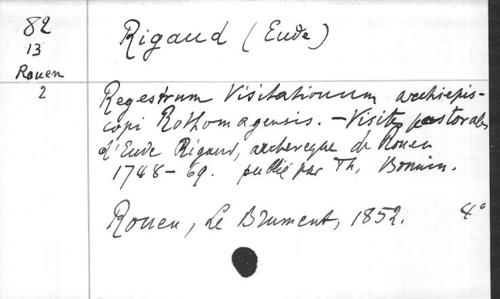 82
13
Rouen
2
Rigaud (Eude)
Regestrum Visitationum archiepis-
copi Rothomagensis. - Visites pastorales
d'Eude Rigaud, archevêque de Rouen
1748-69. publié par Th. Bonnin.
Rouen, Le Brument, 1852. 4°